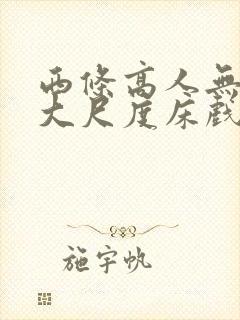 両條高人無
大尺度床戲
施宇帆